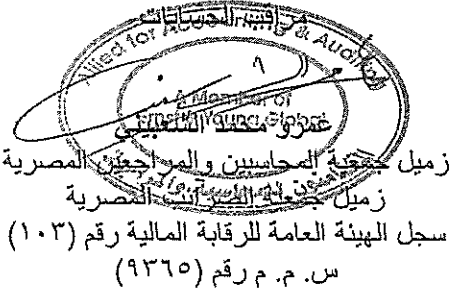 مراقب الحسابات
Allied for Accounting & Auditing
A Member of
Ernst & Young Global
عمرو محمد الشعبيني
زميل جمعية المحاسبين والمراجعين المصرية
زميل جمعية الضرائب المصرية
سجل الهيئة العامة للرقابة المالية رقم (١٠٣)
س. م. م رقم (٩٣٦٥)